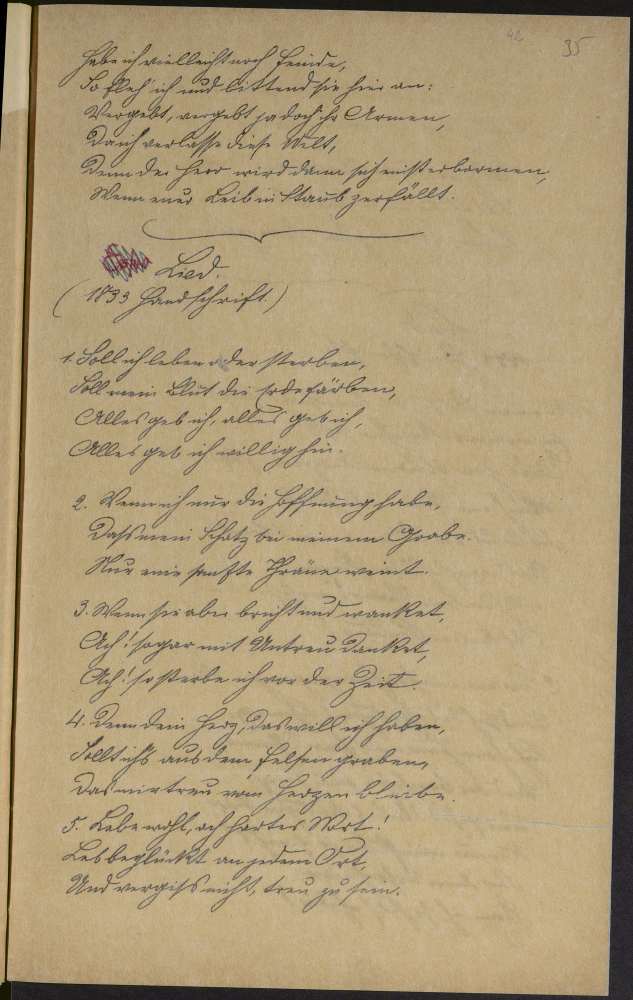 42 35
Habe ich vielleicht noch Feinde,
So fleh' ich und bittend sie hier an:
Vergebt, vergebt ja doch ihr Armen,
Da ich verlasse diese Welt,
Denn der Herr wird dann sich mist erbarmen,
Wenn euer Leib in Staub zerfällt.
Lied.
(1833 Handschrift.)
1. Soll ich leben oder sterben,
Soll mein Blut die Erde färben,
Alles geb ich, alles geb ich,
Alles geb ich willig hin.
2. Wenn ich nur die Hoffnung habe,
Dass mein Schatz bei meinem Grabe
Nur eine sanfte Thräne weint.
3. Wenn sie aber bricht und wanket,
Ach! sogar mit Untreu danket,
Ach! so sterbe ich vor der Zeit.
4. Denn dein Herz, das will ich haben,
Sollt ichs aus dem Felsen graben,
Das mir treu vom Herzen bleibe.
5. Lebe wohl, ach hartes Wort!
Leb beglückt an jedem Ort,
Und vergiss nicht, treu zu sein.